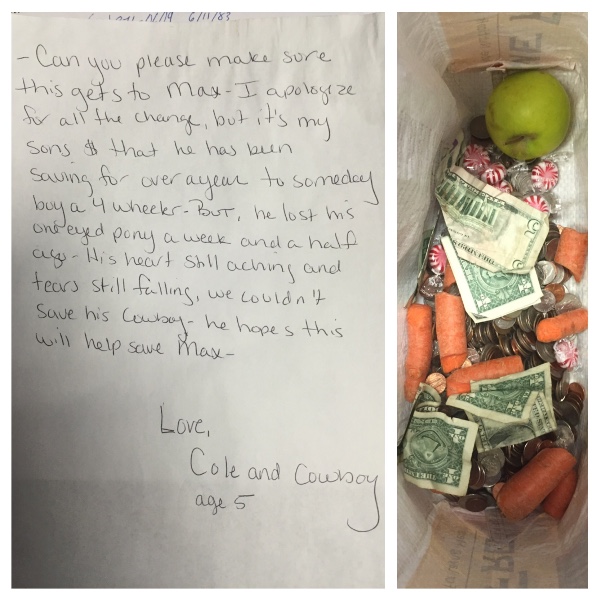 6/11/83
- Can you please make sure
this gets to Max - I apologize
for all the change, but it's my
sons $ that he has been
saving for over a year to someday
buy a 4 wheeler - BUT, he lost his
one eyed pony a week and a half
ago - His heart still aching and
tears still falling, we couldn't
save his Cowboy - he hopes this
will help save Max -
Love,
Cole and Cowboy
age 5
5